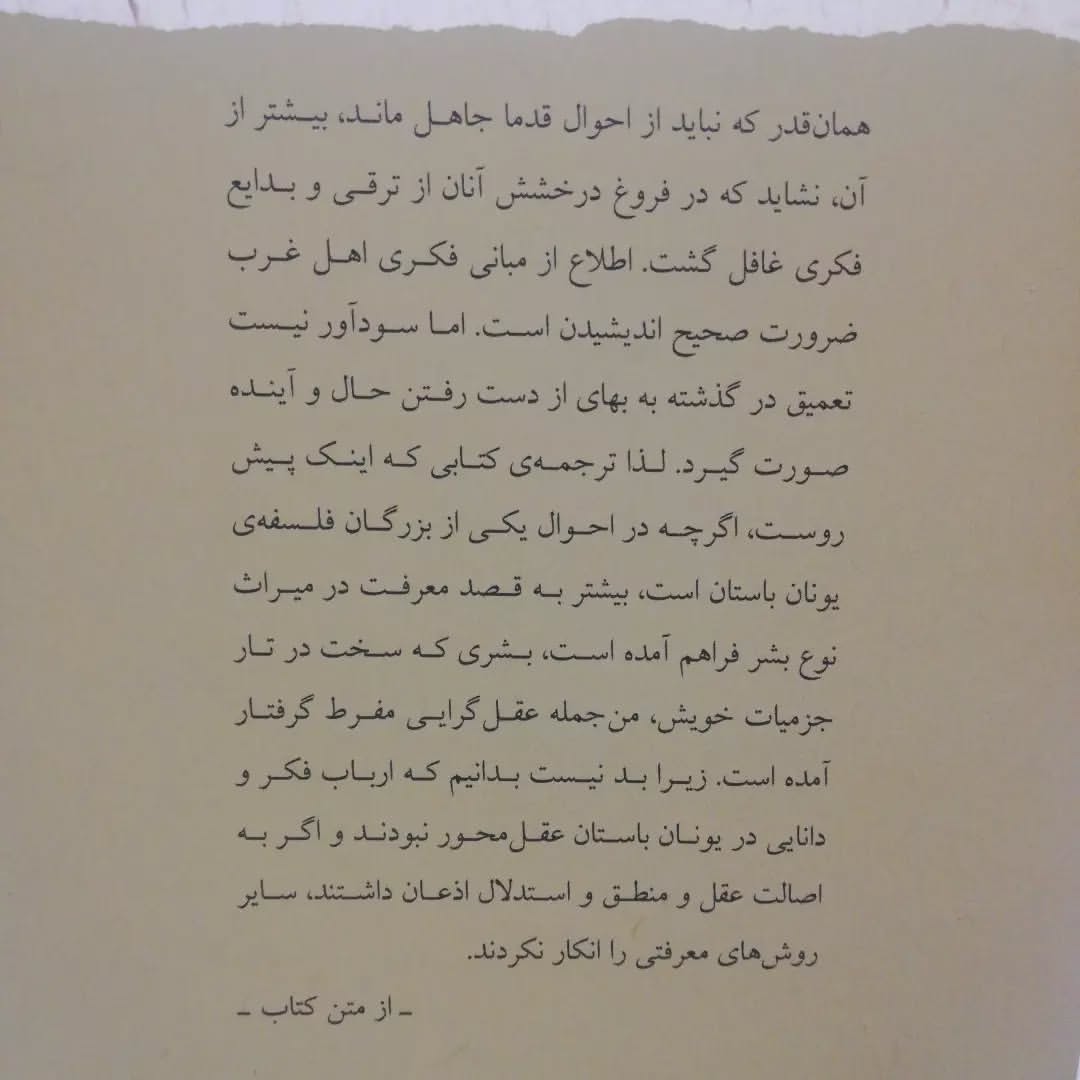 همان‌قدر که نباید از احوال قدما جاهل ماند، بیشتر از
آن، نشاید که در فروغ درخشش آنان از ترقی و بدایع
فکری غافل گشت. اطلاع از مبانی فکری اهل غرب
ضرورت صحیح اندیشیدن است. اما سودآور نیست
تعمیق در گذشته به بهای از دست رفتن حال و آینده
صورت گیرد. لذا ترجمه‌ی کتابی که اینک پیش
روست، اگرچه در احوال یکی از بزرگان فلسفه‌ی
یونان باستان است، بیشتر به قصد معرفت در میراث
نوع بشر فراهم آمده است، بشری که سخت در تار
جزمیات خویش، من‌جمله عقل‌گرایی مفرط گرفتار
آمده است. زیرا بد نیست بدانیم که ارباب فکر و
دانایی در یونان باستان عقل‌محور نبودند و اگر به
اصالت عقل و منطق و استدلال اذعان داشتند، سایر
روش‌های معرفتی را انکار نکردند.
ـ از متن کتاب ـ